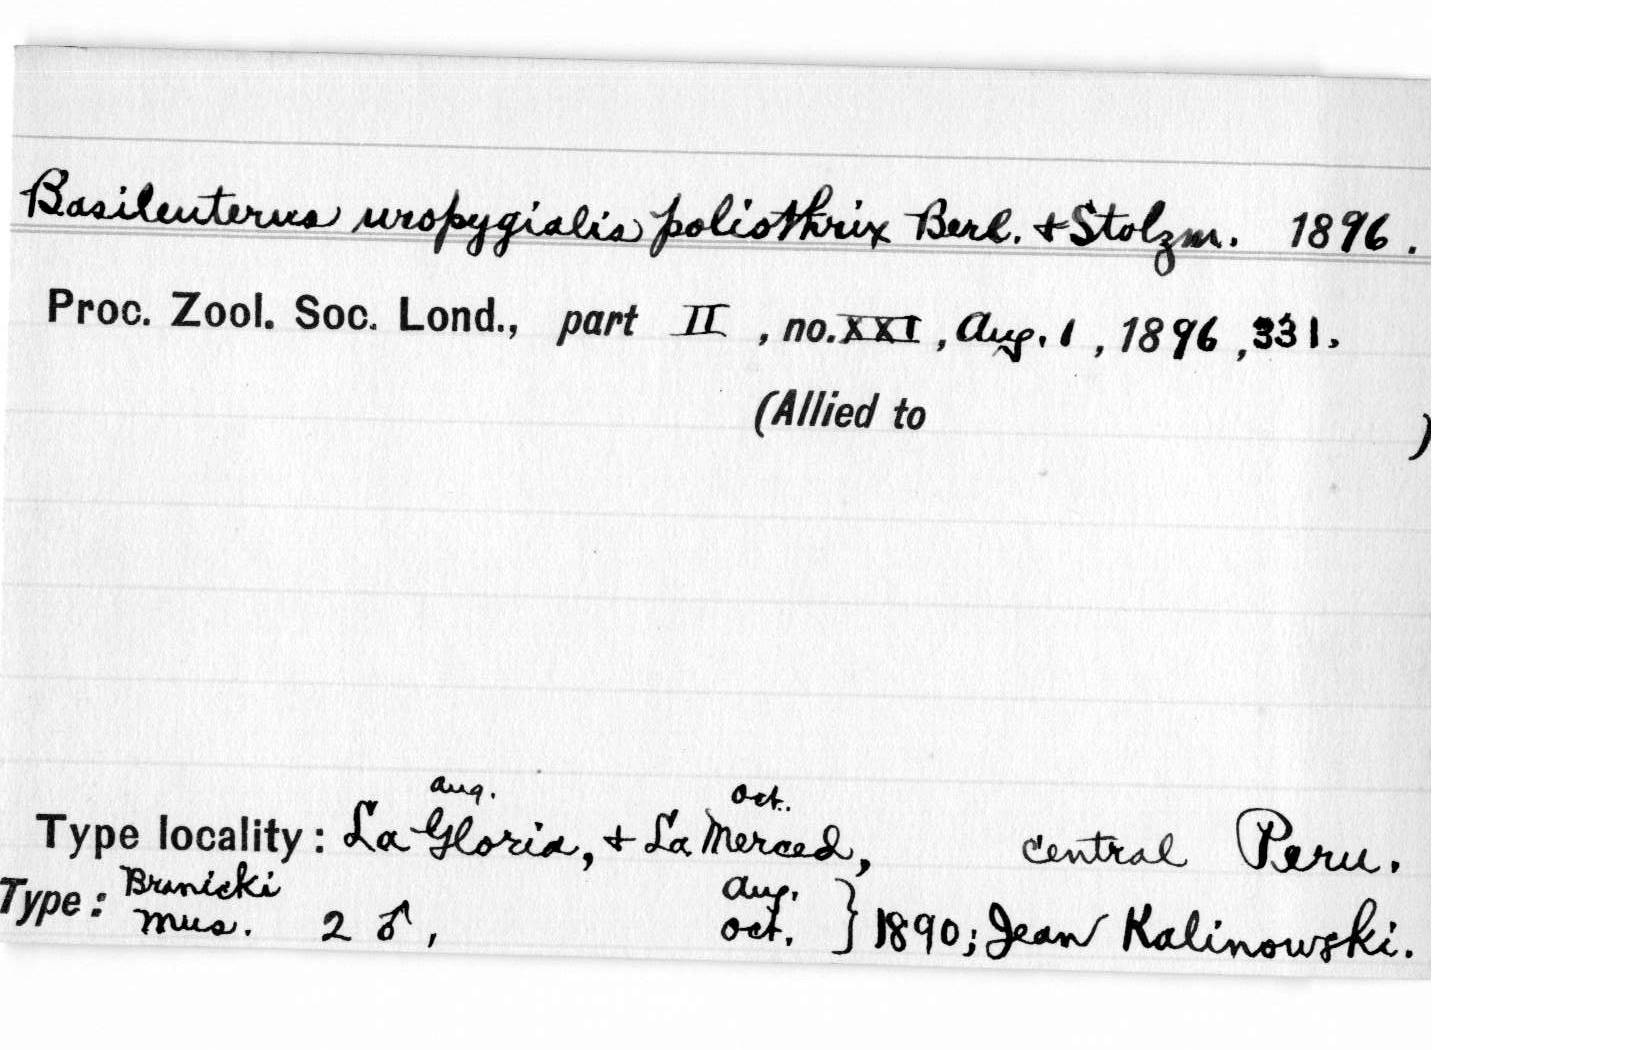 Basileuterus uropygialis poliothrix Berl. + Stolzm. 1896.
Proc. Zool. Soc. Lond., part II, no. XXI, Aug. 1, 1896, 331.
(Allied to )
Aug. Oct.
Type locality: La Gloria, + La Merced, central Peru.
Type: Branicki Mus. 2 ♂, Aug. Oct. } 1890; Jean Kalinowski.